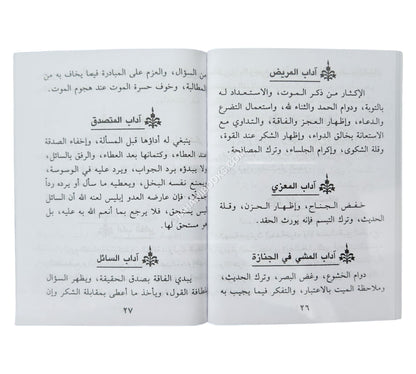 آداب المريض
الإكثار من ذكر الموت، والاستعداد له
بالتوبة، ودوام الحمد والثناء لله، واستعمال التضرع
والدعاء، وإظهار العجز والفاقة، والتداوي مع
الاستعانة بخالق الدواء، وإظهار الشكر عند القوة،
وقلة الشكوى، وإكرام الجلساء، وترك المصافحة.
آداب المعزي
خفض الجناح، وإظهار الحزن، وقلة
الحديث، وترك التبسم فإنه يورث الحقد.
آداب المشي في الجنازة
دوام الخشوع، وغض البصر، وترك الحديث،
وملاحظة الميت بالاعتبار، والتفكر فيما يجيب به
٢٦
من السؤال، والعزم على المبادرة فيما يخاف به من
المطالبة، وخوف حسرة الموت عند هجوم الموت.
آداب المتصدق
ينبغي له أداؤها قبل المسألة، وإخفاء الصدقة
عند العطاء، وكتمانها بعد العطاء، والرفق بالسائل،
ولا يبدؤه برد الجواب، ويرد عليه في الوسوسة،
ويمنع نفسه البخل، ويعطيه ما سأل أو يرده رداً
جميلاً، فإن عارضه العدو إبليس لعنه الله أن السائل
ليس يستحق، فلا يرجع بما أنعم الله به عليه، بل
هو مستحق لها.
آداب السائل
يبدي الفاقة بصدق الحقيقة، ويظهر السؤال
بلطافة القول، ويأخذ ما أعطى بمقابلة الشكر وإن
٢٧